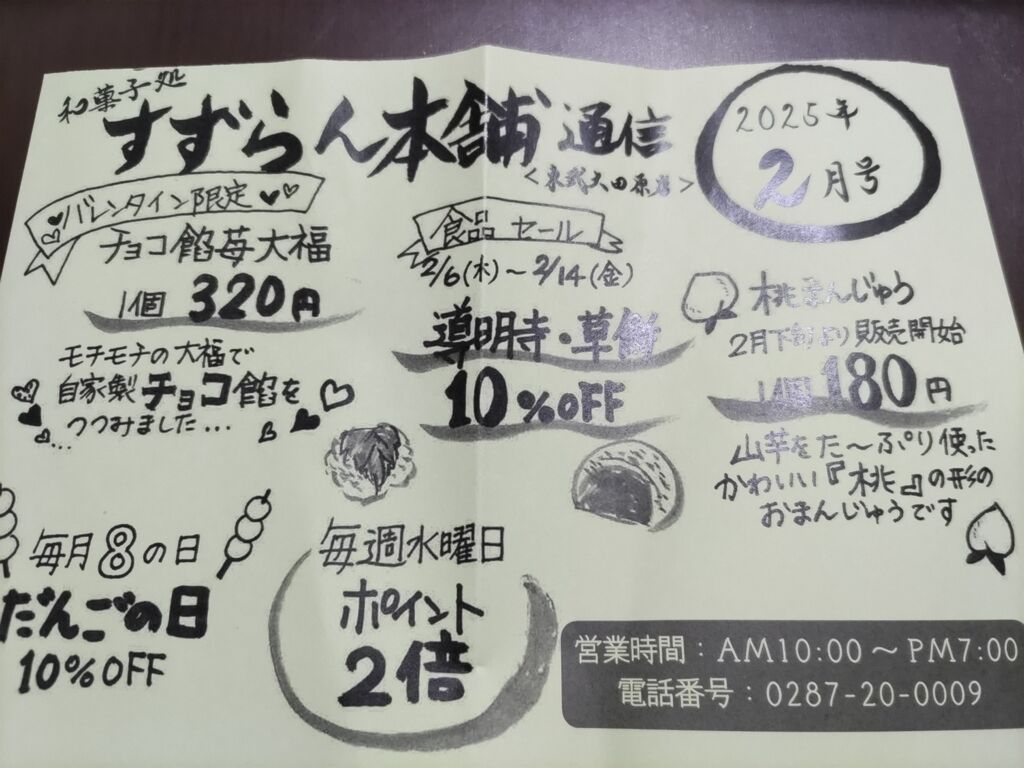 和菓子処
すずらん本舗 通信
<東武大田原店>
2025年
2月号
バレンタイン限定
チョコ餡苺大福
1個 320円
モチモチの大福で
自家製チョコ餡を
つつみました...
食品セール
2/6(木)～2/14(金)
導明寺・草餅
10%OFF
桃まんじゅう
2月下旬より販売開始
1個180円
山芋をた〜ぷり使った
かわいい『桃』の形の
おまんじゅうです
毎月8の日
だんごの日
10%OFF
毎週水曜日
ポイント
2倍
営業時間：AM10:00～PM7:00
電話番号：0287-20-0009